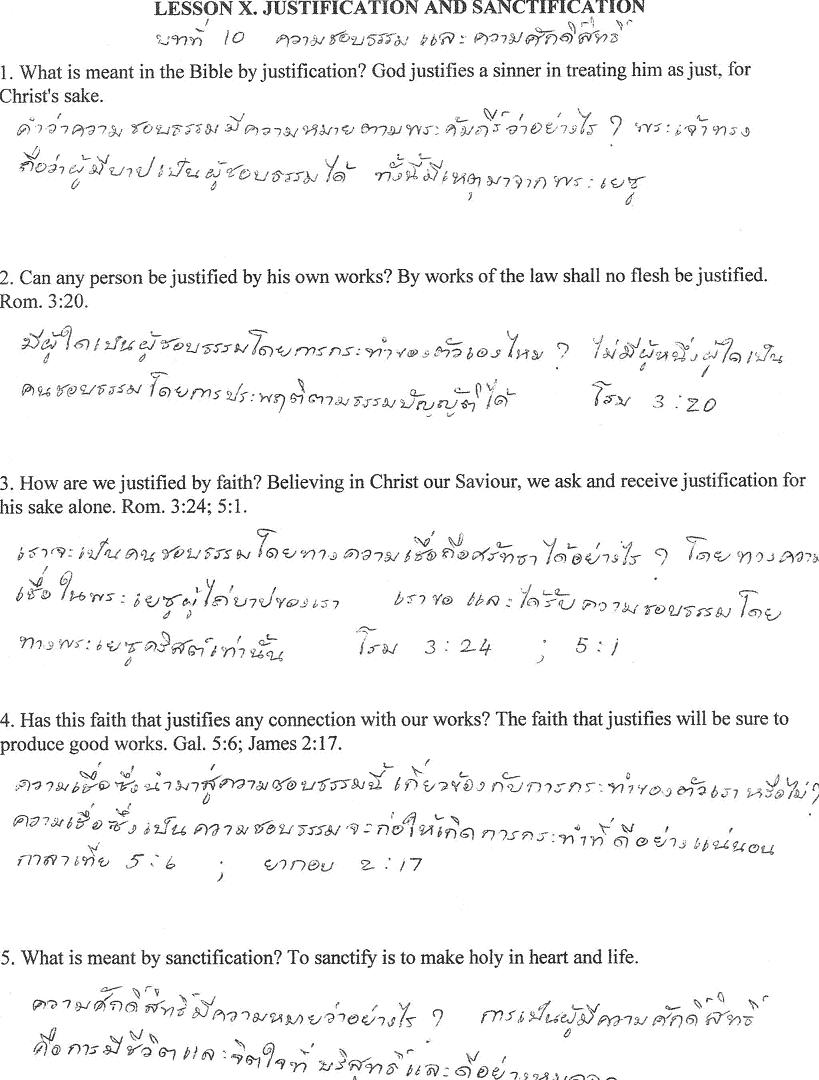 LESSON X. JUSTIFICATION AND SANCTIFICATION
บทที่ 10 ความชอบธรรม และ ความศักดิ์สิทธิ์
1. What is meant in the Bible by justification? God justifies a sinner in treating him as just, for
Christ's sake.
คำว่าความชอบธรรมมีความหมายตามพระคัมภีร์ว่าอย่างไร ? พระเจ้าทรง
ถือว่าผู้มีบาปเป็นผู้ชอบธรรมได้ ทั้งนี้มีเหตุมาจากพระเยซู
2. Can any person be justified by his own works? By works of the law shall no flesh be justified.
Rom. 3:20.
มีผู้ใดเป็นผู้ชอบธรรมโดยการกระทำของตัวเองไหม ? ไม่มีผู้หนึ่งผู้ใดเป็น
คนชอบธรรมโดยการประพฤติตามธรรมบัญญัติได้ โรม 3:20
3. How are we justified by faith? Believing in Christ our Saviour, we ask and receive justification for
his sake alone. Rom. 3:24; 5:1.
เราจะเป็นคนชอบธรรมโดยทางความเชื่อถือศรัทธาได้อย่างไร ? โดยทางความ
เชื่อในพระเยซูผู้ไถ่บาปของเรา เราขอ และได้รับความชอบธรรมโดย
ทางพระเยซูคริสต์เท่านั้น โรม 3:24 ; 5:1
4. Has this faith that justifies any connection with our works? The faith that justifies will be sure to
produce good works. Gal. 5:6; James 2:17.
ความเชื่อซึ่งนำมาสู่ความชอบธรรมนี้ เกี่ยวข้องกับการกระทำของตัวเราหรือไม่?
ความเชื่อซึ่งเป็นความชอบธรรมจะก่อให้เกิดการกระทำที่ดีอย่างแน่นอน
กาลาเทีย 5:6 ; ยากอบ 2:17
5. What is meant by sanctification? To sanctify is to make holy in heart and life.
ความศักดิ์สิทธิ์มีความหมายว่าอย่างไร ? การเป็นผู้มีความศักดิ์สิทธิ์
คือการมีชีวิตและจิตใจที่บริสุทธิ์และดีอย่าง